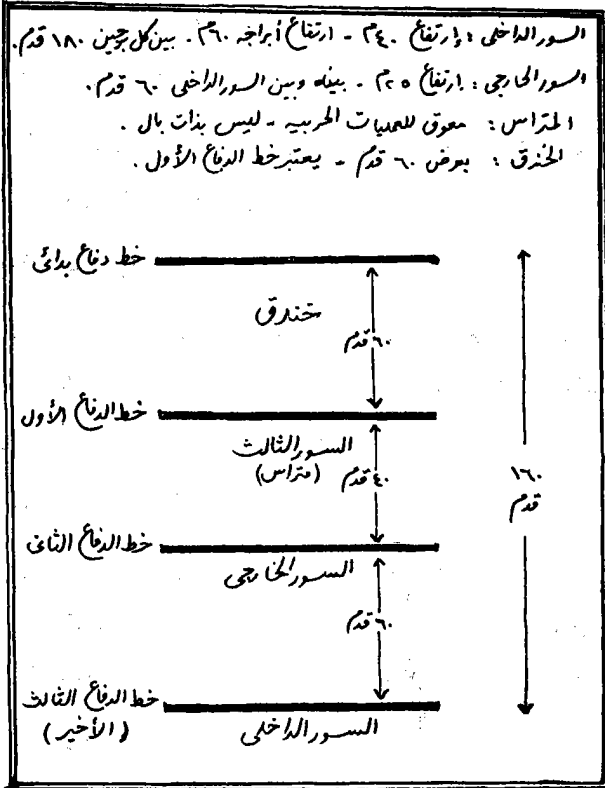 السور الداخلى : إرتفاع ٤٠م - ارتفاع أبراجه ٦٠م . بين كل برجين ١٨٠ قدم .
السور الخارجى : ارتفاع ٢٥م - بينه وبين السور الداخلى ٦٠ قدم .
المتراس : معوق للعمليات الحربيه - ليس بذات بال .
الخندق : بعرض ٦٠ قدم - يعتبر خط الدفاع الأول .
خط دفاع بدائى
خندق
٦٠ قدم
خط الدفاع الأول
السور الثالث
(متراس)
٤٠ قدم
١٦٠
قدم
خط الدفاع الثانى
السور الخارجى
٦٠ قدم
خط الدفاع الثالث
(الأخير)
السور الداخلى